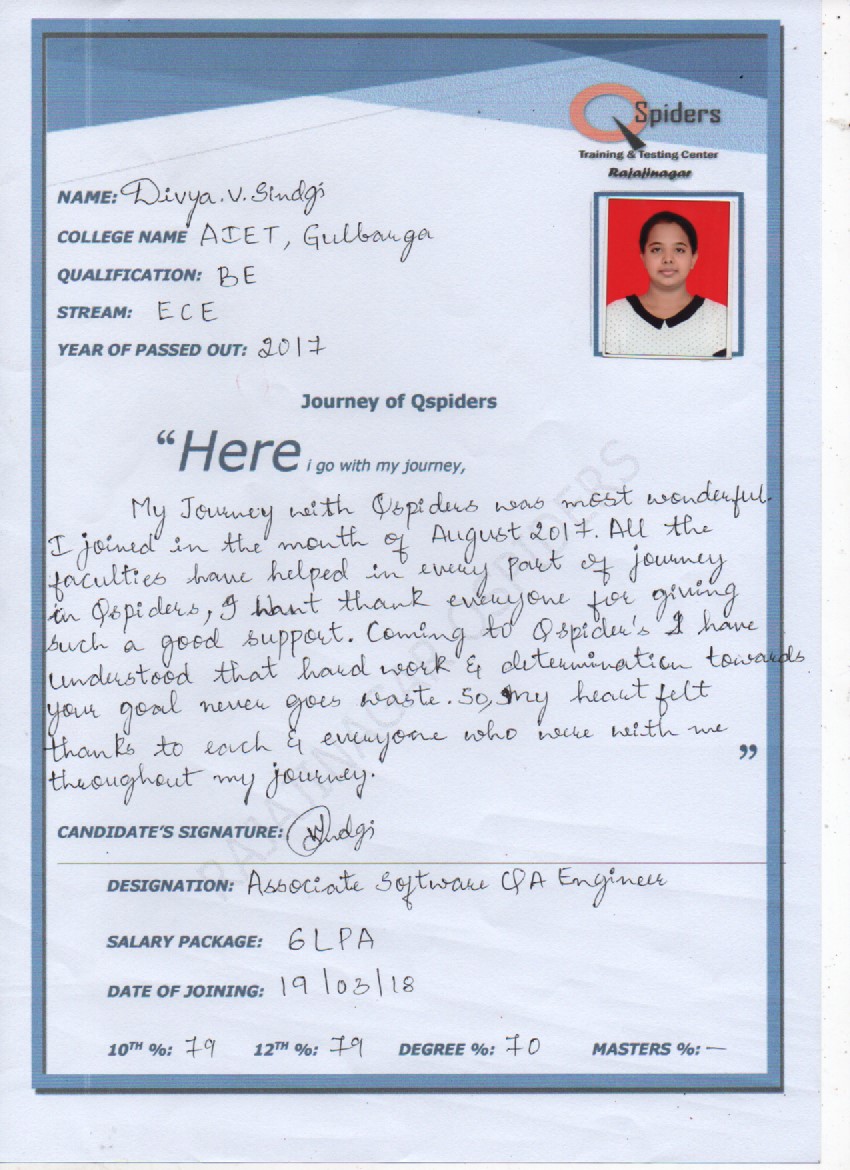 QSpiders
Training & Testing Center
Rajajinagar
NAME: Divya.V.Sindgi
COLLEGE NAME AIET, Gulbarga
QUALIFICATION: BE
STREAM: ECE
YEAR OF PASSED OUT: 2017
Journey of Qspiders
“Here i go with my journey,
My Journey with Qspiders was most wonderful.
I joined in the month of August 2017. All the
faculties have helped in every part of journey
in Qspiders, I want thank everyone for giving
such a good support. Coming to Qspider's I have
understood that hard work & determination towards
your goal never goes waste. So, my heart felt
thanks to each & everyone who were with me
throughout my journey.
”
CANDIDATE'S SIGNATURE: Sindgi
DESIGNATION: Associate Software QA Engineer
SALARY PACKAGE: 6LPA
DATE OF JOINING: 19/03/18
10TH %: 79 12TH %: 79 DEGREE %: 70 MASTERS %: —
RAJAJINAGAR QSPIDERS